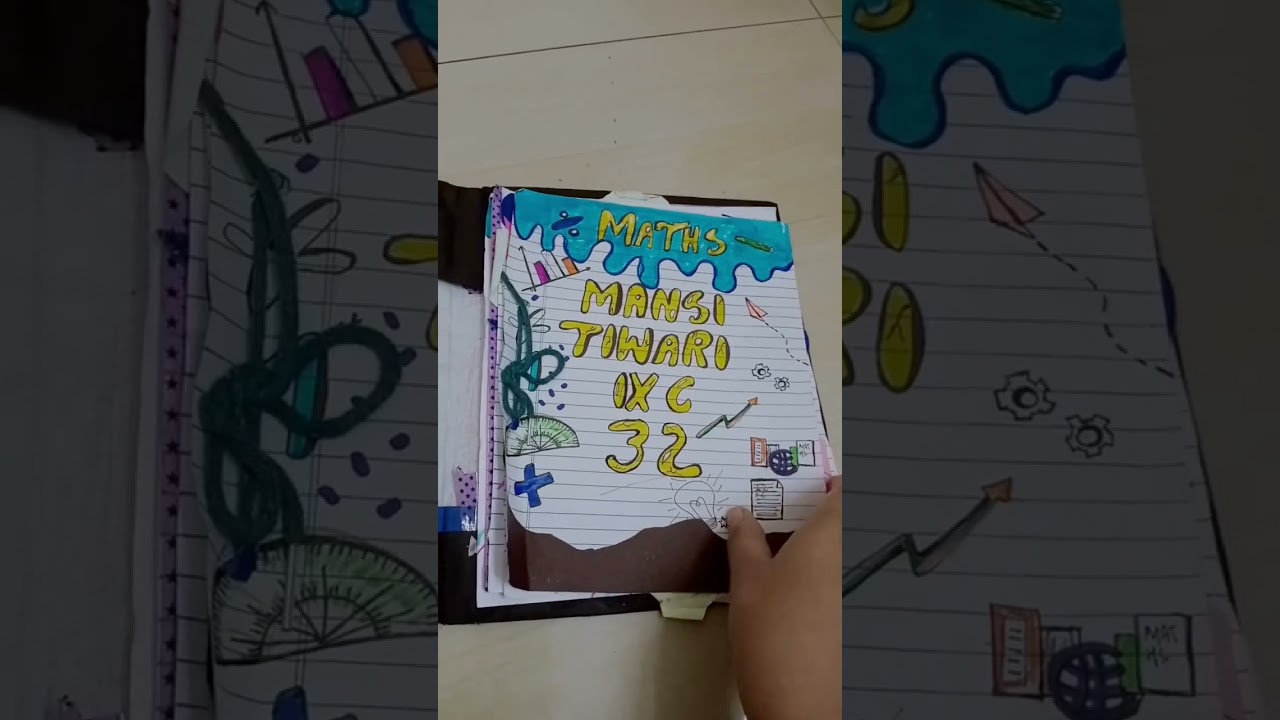 MATHS
MANSI
TIWARI
IX C
32